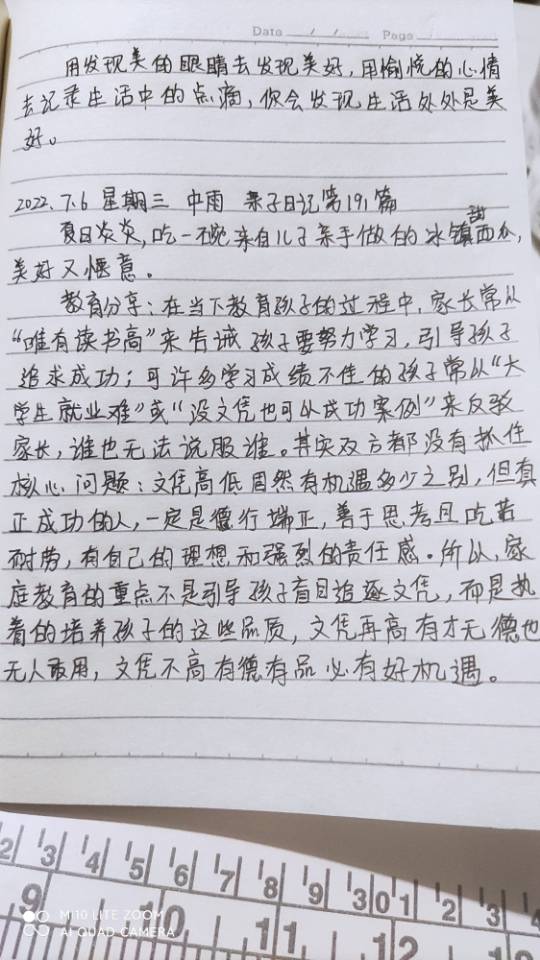 Date / / Page
用发现美的眼睛去发现美好,用愉悦的心情
去记录生活中的点滴,你会发现生活处处是美
好。
2022.7.6 星期三 中雨 亲子日记第191篇
甜
夏日炎炎,吃一碗来自儿子亲手做的冰镇西瓜,
美好又惬意。
教育分享:在当下教育孩子的过程中,家长常以
“唯有读书高”来告诫孩子要努力学习,引导孩子
追求成功;可许多学习成绩不佳的孩子常以“大
学生就业难”或“没文凭也可以成功案例”来反驳
家长,谁也无法说服谁。其实双方都没有抓住
核心问题:文凭高低固然有机遇多少之别,但真
正成功的人,一定是德行端正,善于思考且吃苦
耐劳,有自己的理想和强烈的责任感。所以,家
庭教育的重点不是引导孩子盲目追逐文凭,而是执
着的培养孩子的这些品质,文凭再高有才无德也
无人敢用,文凭不高有德有品必有好机遇。
2 1 3 1 4 1 5 1 6 1 7 1 8 1 9 1 30 1 1 2 1 3 1 4
9 10 11 12
MI 10 LITE ZOOM
AI QUAD CAMERA